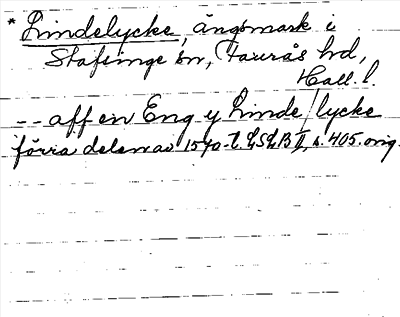 * Lindelycke, ängsmark i
Stafsinge sn, Faurås hd,
Hall. l.
-- aff en Eng y Linde/lycke
förra delen av 1570-t. LSLB II, s. 405. orig.